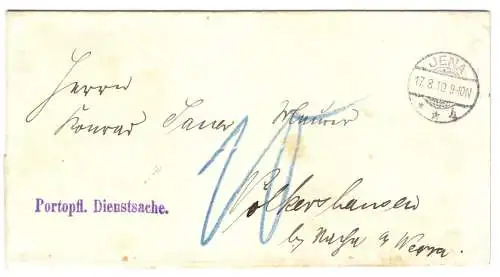 JENA
17.8.10.9-10N
* * h
Herrn
Konrad Maurer
Portopfl. Dienstsache.
10
Völkershausen
by Vacha a Werra.